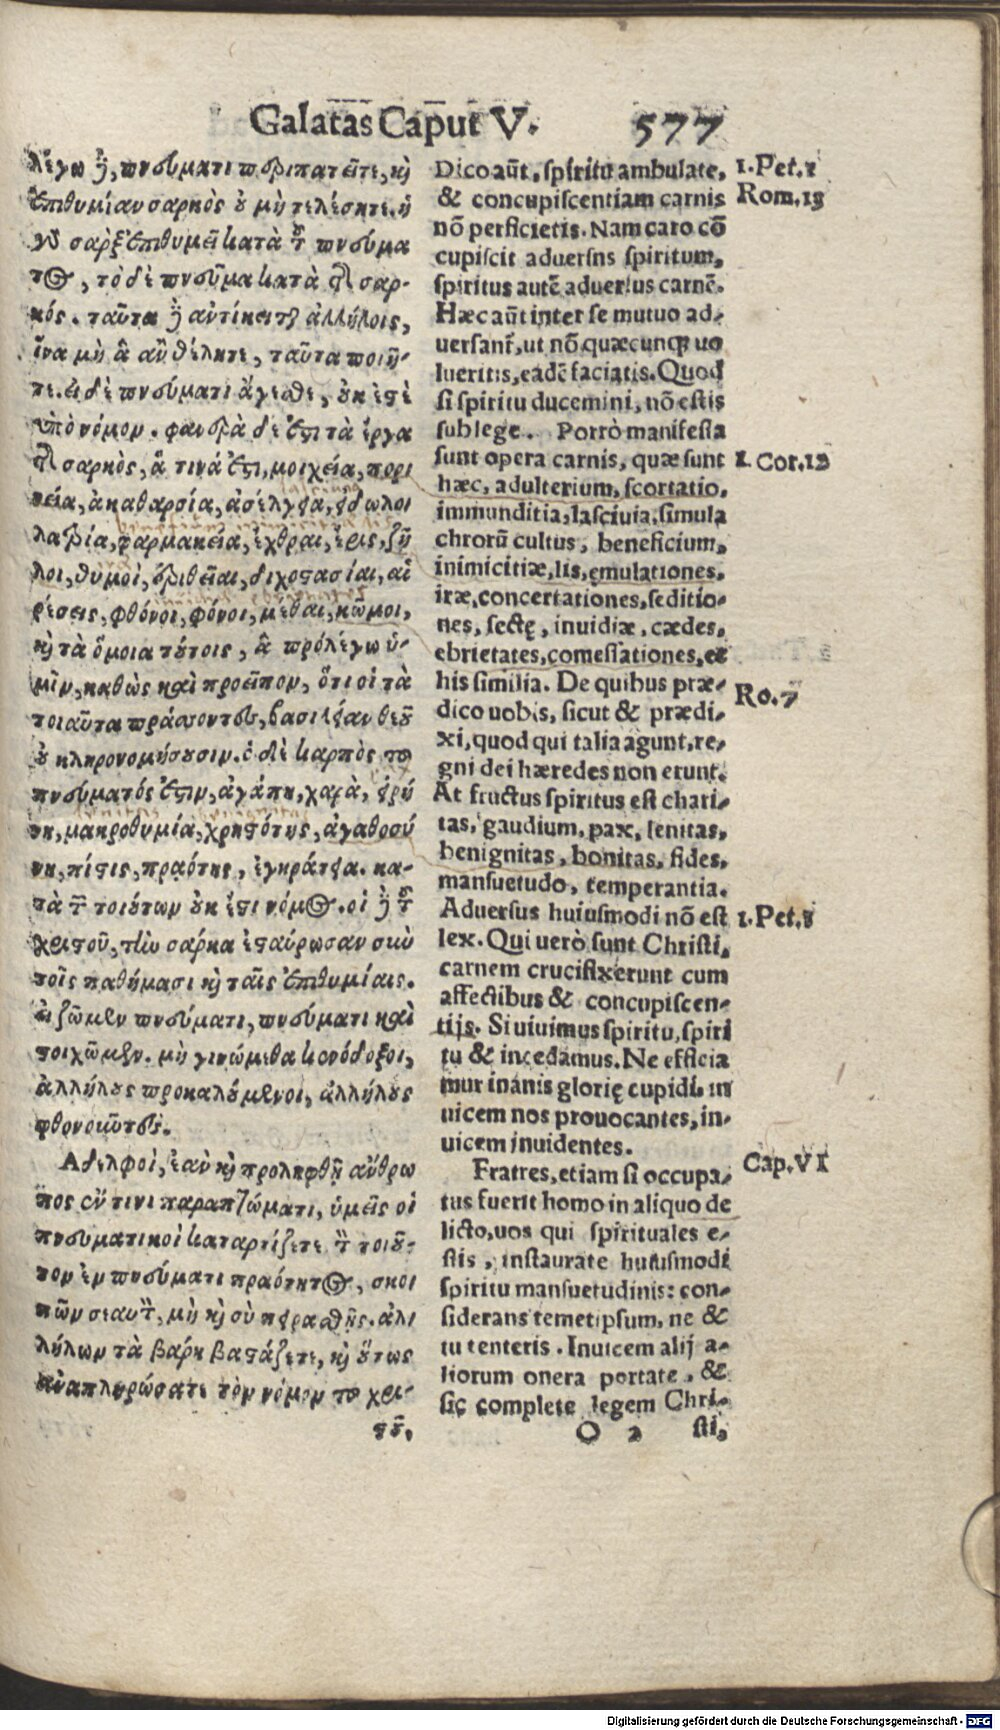 Galatas Caput V. 577
λέγω ȣ̃, πνεύματι περιπατεῖτε, κỳ
ἐπιθυμίαν σαρκὸς ȣ μὴ τελέσητε. ἡ
γὸ σαρξ ἐπιθυμεῖ κατὰ τ πνεύμα
τ⊙, τὸ δὲ πνεῦμα κατὰ τ σαρ-
κός. ταῦτα ἀντίκειτ ἀλλήλοις,
ἵνα μὴ ἃ ἂν θέλητε, ταῦτα ποιῆ-
τε. εἰ δὲ πνεύματι ἄγεσθε, ȣκ ἐστὲ
ὑπὸ νόμομ. φανερὰ δέ ἐστι τὰ ἔργα
τ σαρκὸς, ἅ τινά ἐστι, μοιχεία, πορι
νεία, ἀκαθαρσία, ἀσέλγεια, εἰδωλοι
λατρία, φαρμακεία, ἔχθραι, ἔρις, ζῆ
λοι, θυμοὶ, ἐριθεῖαι, διχοστασίαι, αἱ
ρέσεις, φθόνοι, φόνοι, μέθαι, κῶμοι,
κỳ τὰ ὅμοια τȣτοις, ἃ πρόλέγω ὑ-
μῖμ, καθὼς καὶ προεῖπομ, ὅτι οἱ τὰ
τοιαῦτα πράσσοντες, βασιλείαν θεȣ
ȣ κληρονομήσουσιμ. ὁ δὲ καρπὸς το
πνεύματός ἐστιμ, ἀγάπη, χαρὰ, εἰρή
νη, μακροθυμία, χρηστότης, ἀγαθοσύ
νη, πίστις, πραότης, ἐγκράτεια. κα-
τὰ τ τοιȣτωμ ȣκ ἔστι νόμ⊙. οἱ τ
χριστοῦ, τὴν σάρκα ἐσταύρωσαν σὺν
τοῖς παθήμασι κỳ ταῖς ἐπιθυμίαις.
εἰ ζῶμεν πνεύματι, πνεύματι καὶ
στοιχῶμεν. μὴ γινώμεθα κενόδοξοι,
ἀλλήλȣς προκαλȣμενοι, ἀλλήλȣς
φθονοῦντες.
Αδελφοὶ, ἐὰν κỳ προληφθῇ ἄνθρω
πος ἔν τινι παραπτώματι, ὑμεῖς οἱ
πνευματικοὶ καταρτίζετε τ τοιȣ-
τομ ἐμ πνεύματι πραότητ⊙, σκοι
πῶμ σεαυτ, μὴ κỳ σὺ πειρασθῇς. ἀλι
λήλωμ τὰ βάρη βαστάζετε, κỳ ȣτως
ἀναπληρώσατε τὸμ νόμομ το χρι-
στȣ,
Dico aūt, spiritu ambulate,
& concupiscentiam carnis
nō perficietis. Nam caro cō
cupiscit aduersns spiritum,
spiritus autē aduersus carnē.
Hæc aūt inter se mutuo ad-
uersant, ut nō quæcunq; uo
lueritis, eadē faciatis. Quod
si spiritu ducemini, nō estis
sub lege. Porrò manifesta
sunt opera carnis, quæ sunt
hæc, adulterium, scortatio,
immunditia, lasciuia, simula
chrorū cultus, beneficium,
inimicitiæ, lis, ęmulationes,
iræ, concertationes, seditio-
nes, sectę, inuidiæ, cædes,
ebrietates, comessationes, et
his similia. De quibus præ-
dico uobis, sicut & prædi-
xi, quod qui talia agunt, re-
gni dei hæredes non erunt.
At fructus spiritus est chari-
tas, gaudium, pax, lenitas,
benignitas, bonitas, fides,
mansuetudo, temperantia.
Aduersus huiusmodi nō est
lex. Qui uerò sunt Christi,
carnem crucifixerunt cum
affectibus & concupiscen-
tijs. Si uiuimus spiritu, spiri
tu & incedamus. Ne efficia
mur inanis glorię cupidi. in
uicem nos prouocantes, in-
uicem inuidentes.
Fratres, etiam si occupa-
tus fuerit homo in aliquo de
licto, uos qui spirituales e-
stis, instaurate huiusmodi
spiritu mansuetudinis: con-
siderans temetipsum, ne &
tu tenteris. Inuicem alij a-
liorum onera portate, &
sic complete legem Chri-
O 2 sti,
1. Pet. 2
Rom. 13
1. Cor. 13
Ro. 7
1. Pet. 3
Cap. VI
Digitalisierung gefördert durch die Deutsche Forschungsgemeinschaft - DFG